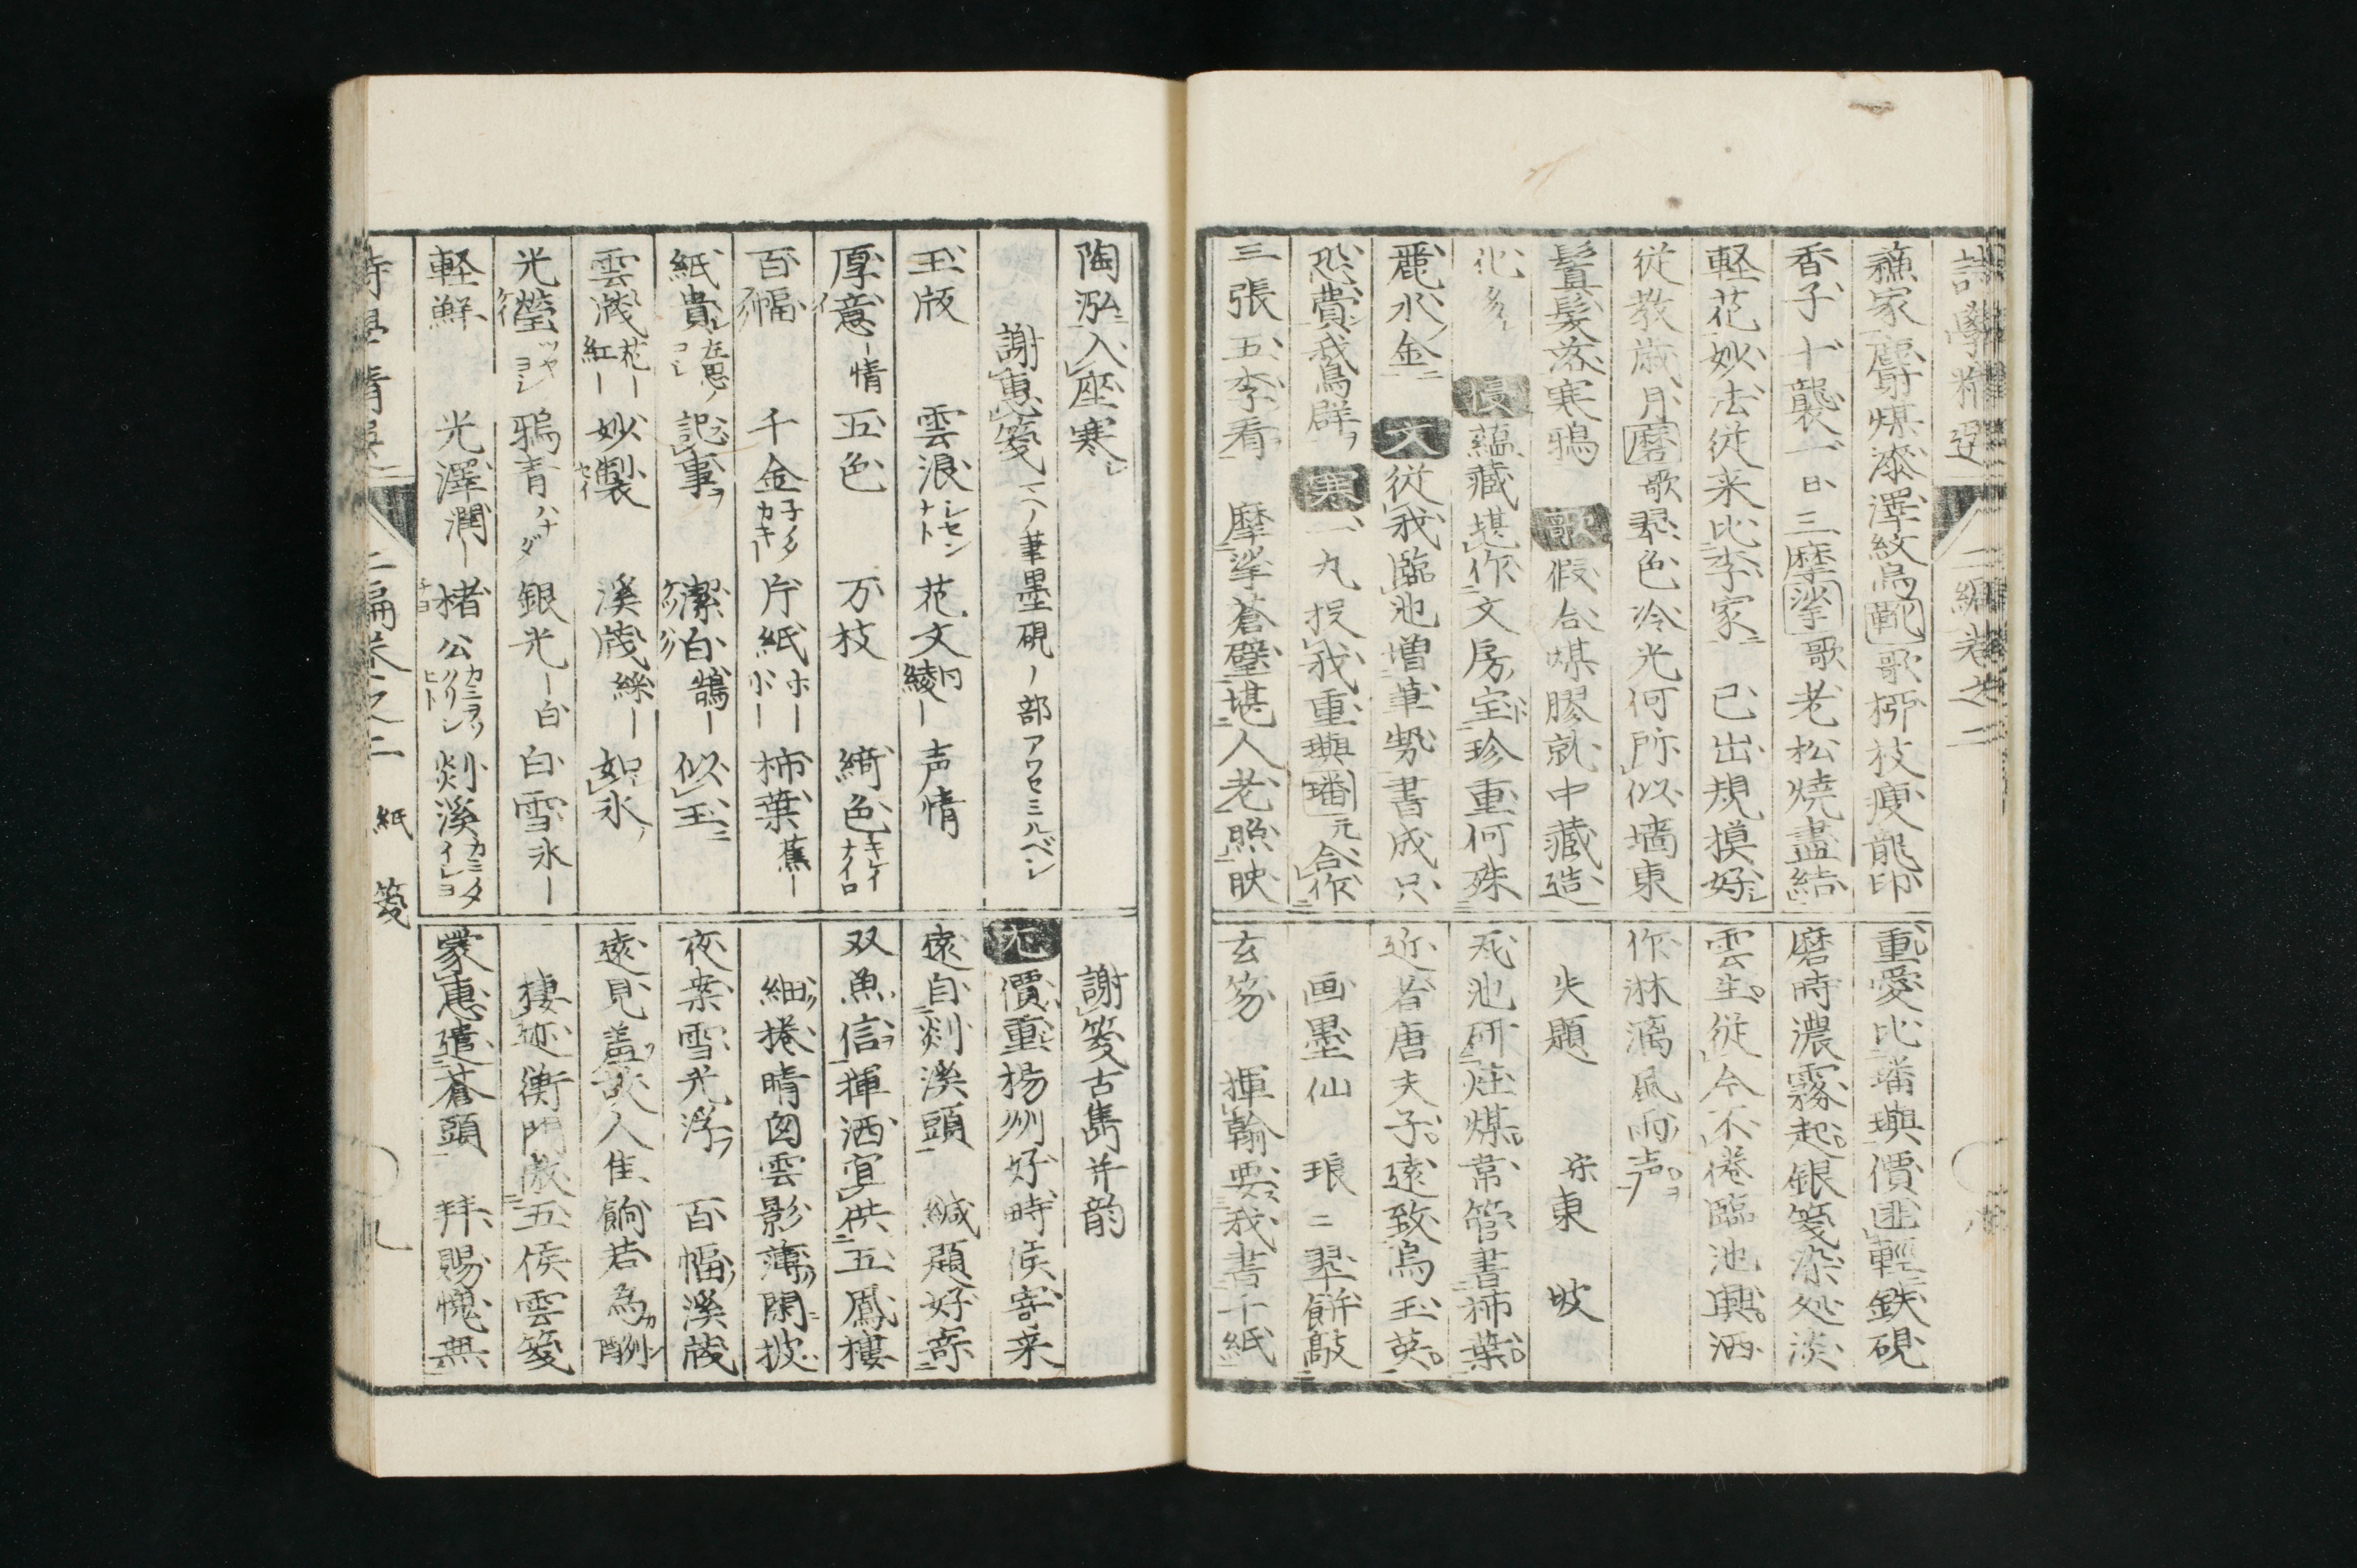 詩學精選 二編卷之二
蘇家麝煤漆澤紋烏靴歌柳枝瘦龍印
香子十襲一日三摩挲歌老松燒盡結
軽花妙法従来比李家 已出規摸好
従教歳月磨歌翠色冷光何所似墻東
鬒髮落寒鴉 歌假合煤膠就中藏造
化多 長蘊藏堪作文房宝珍重何殊
麗水金 文従我臨池増筆勢書成只
恐費我鳥群 寒一丸投我重璵璠元合作
三張五李看 摩挲蒼璧堪人老照映
重愛比璠璵價匪輕鉄硯
磨時濃霧起銀箋染処淡
雲生従今不倦臨池興洒
作淋漓風雨声
失題 宋東坡
瓦池研灶煤常管書柿葉
近者唐夫子遠致烏玉英
画墨仙 琅ニ翠餅敲
玄笏 揮翰要我書千紙
陶泓入座寒
謝惠箋 コノ筆墨硯ノ部アワセミルベシ
玉版 雲浪 花文 綾 声情
厚意 情 五色 万枝 綺色 キレイナイロ
百幅 千金 片紙 柿葉 蕉
紙貴 記事 潔白 鵠 似玉
雲牋 花 紅 妙製 セイ 溪牋 如氷
光瑩 ツヤヨシ 鴉青 ハナダ 銀光 白 白雪 氷
軽鮮 光澤 潤 楮公 剡溪
謝箋古雋并韵
尤價重揚州好時侯寄来
遠自剡溪頭 緘題好寄
双魚信揮洒宜供五鳳樓
細捲晴囱雲影薄閑披
夜案雪光浮 百幅溪牋
遠見盖故人佳餉若為酬
棲迹衡門敵五侯雲箋
蒙惠遣蒼頭 拜賜愧無
二編卷之二 紙 箋 九